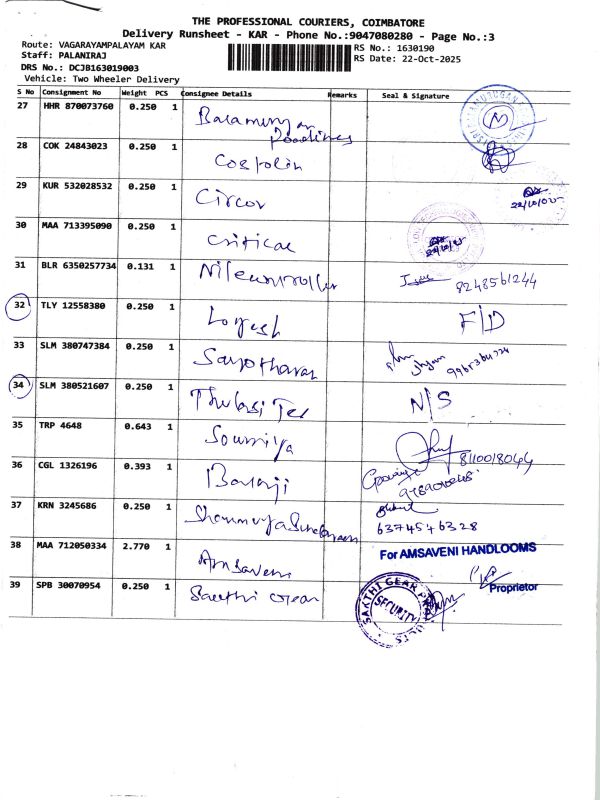 THE PROFESSIONAL COURIERS, COIMBATORE
Delivery Runsheet - KAR - Phone No.:9047080280 - Page No.:3
Route: VAGARAYAMPALAYAM KAR
RS No.: 1630190
Staff: PALANIRAJ
RS Date: 22-Oct-2025
DRS No.: DCJB163019003
Vehicle: Two Wheeler Delivery
S No Consignment No Weight PCS Consignee Details Remarks Seal & Signature
27 HHR 870073760 0.250 1
Roadlines
28 COK 24843023 0.250 1
29 KUR 532028532 0.250 1 Circor
22/10/25
30 MAA 713395090 0.250 1 Critical
22/10/25
31 BLR 6350257734 0.131 1 8248561244
32 TLY 12558380 0.250 1 Logesh F/D
33 SLM 380747384 0.250 1
34 SLM 380521607 0.250 1 Thulasi Tex N/S
35 TRP 4648 0.643 1 Soumiya 8110018044
36 CGL 1326196 0.393 1 Balaji
37 KRN 3245686 0.250 1
6374546328
38 MAA 712050334 2.770 1 Amsaveni For AMSAVENI HANDLOOMS
Proprietor
39 SPB 30070954 0.250 1 Sakthi Gear SAKTHI GEAR
SECURITY